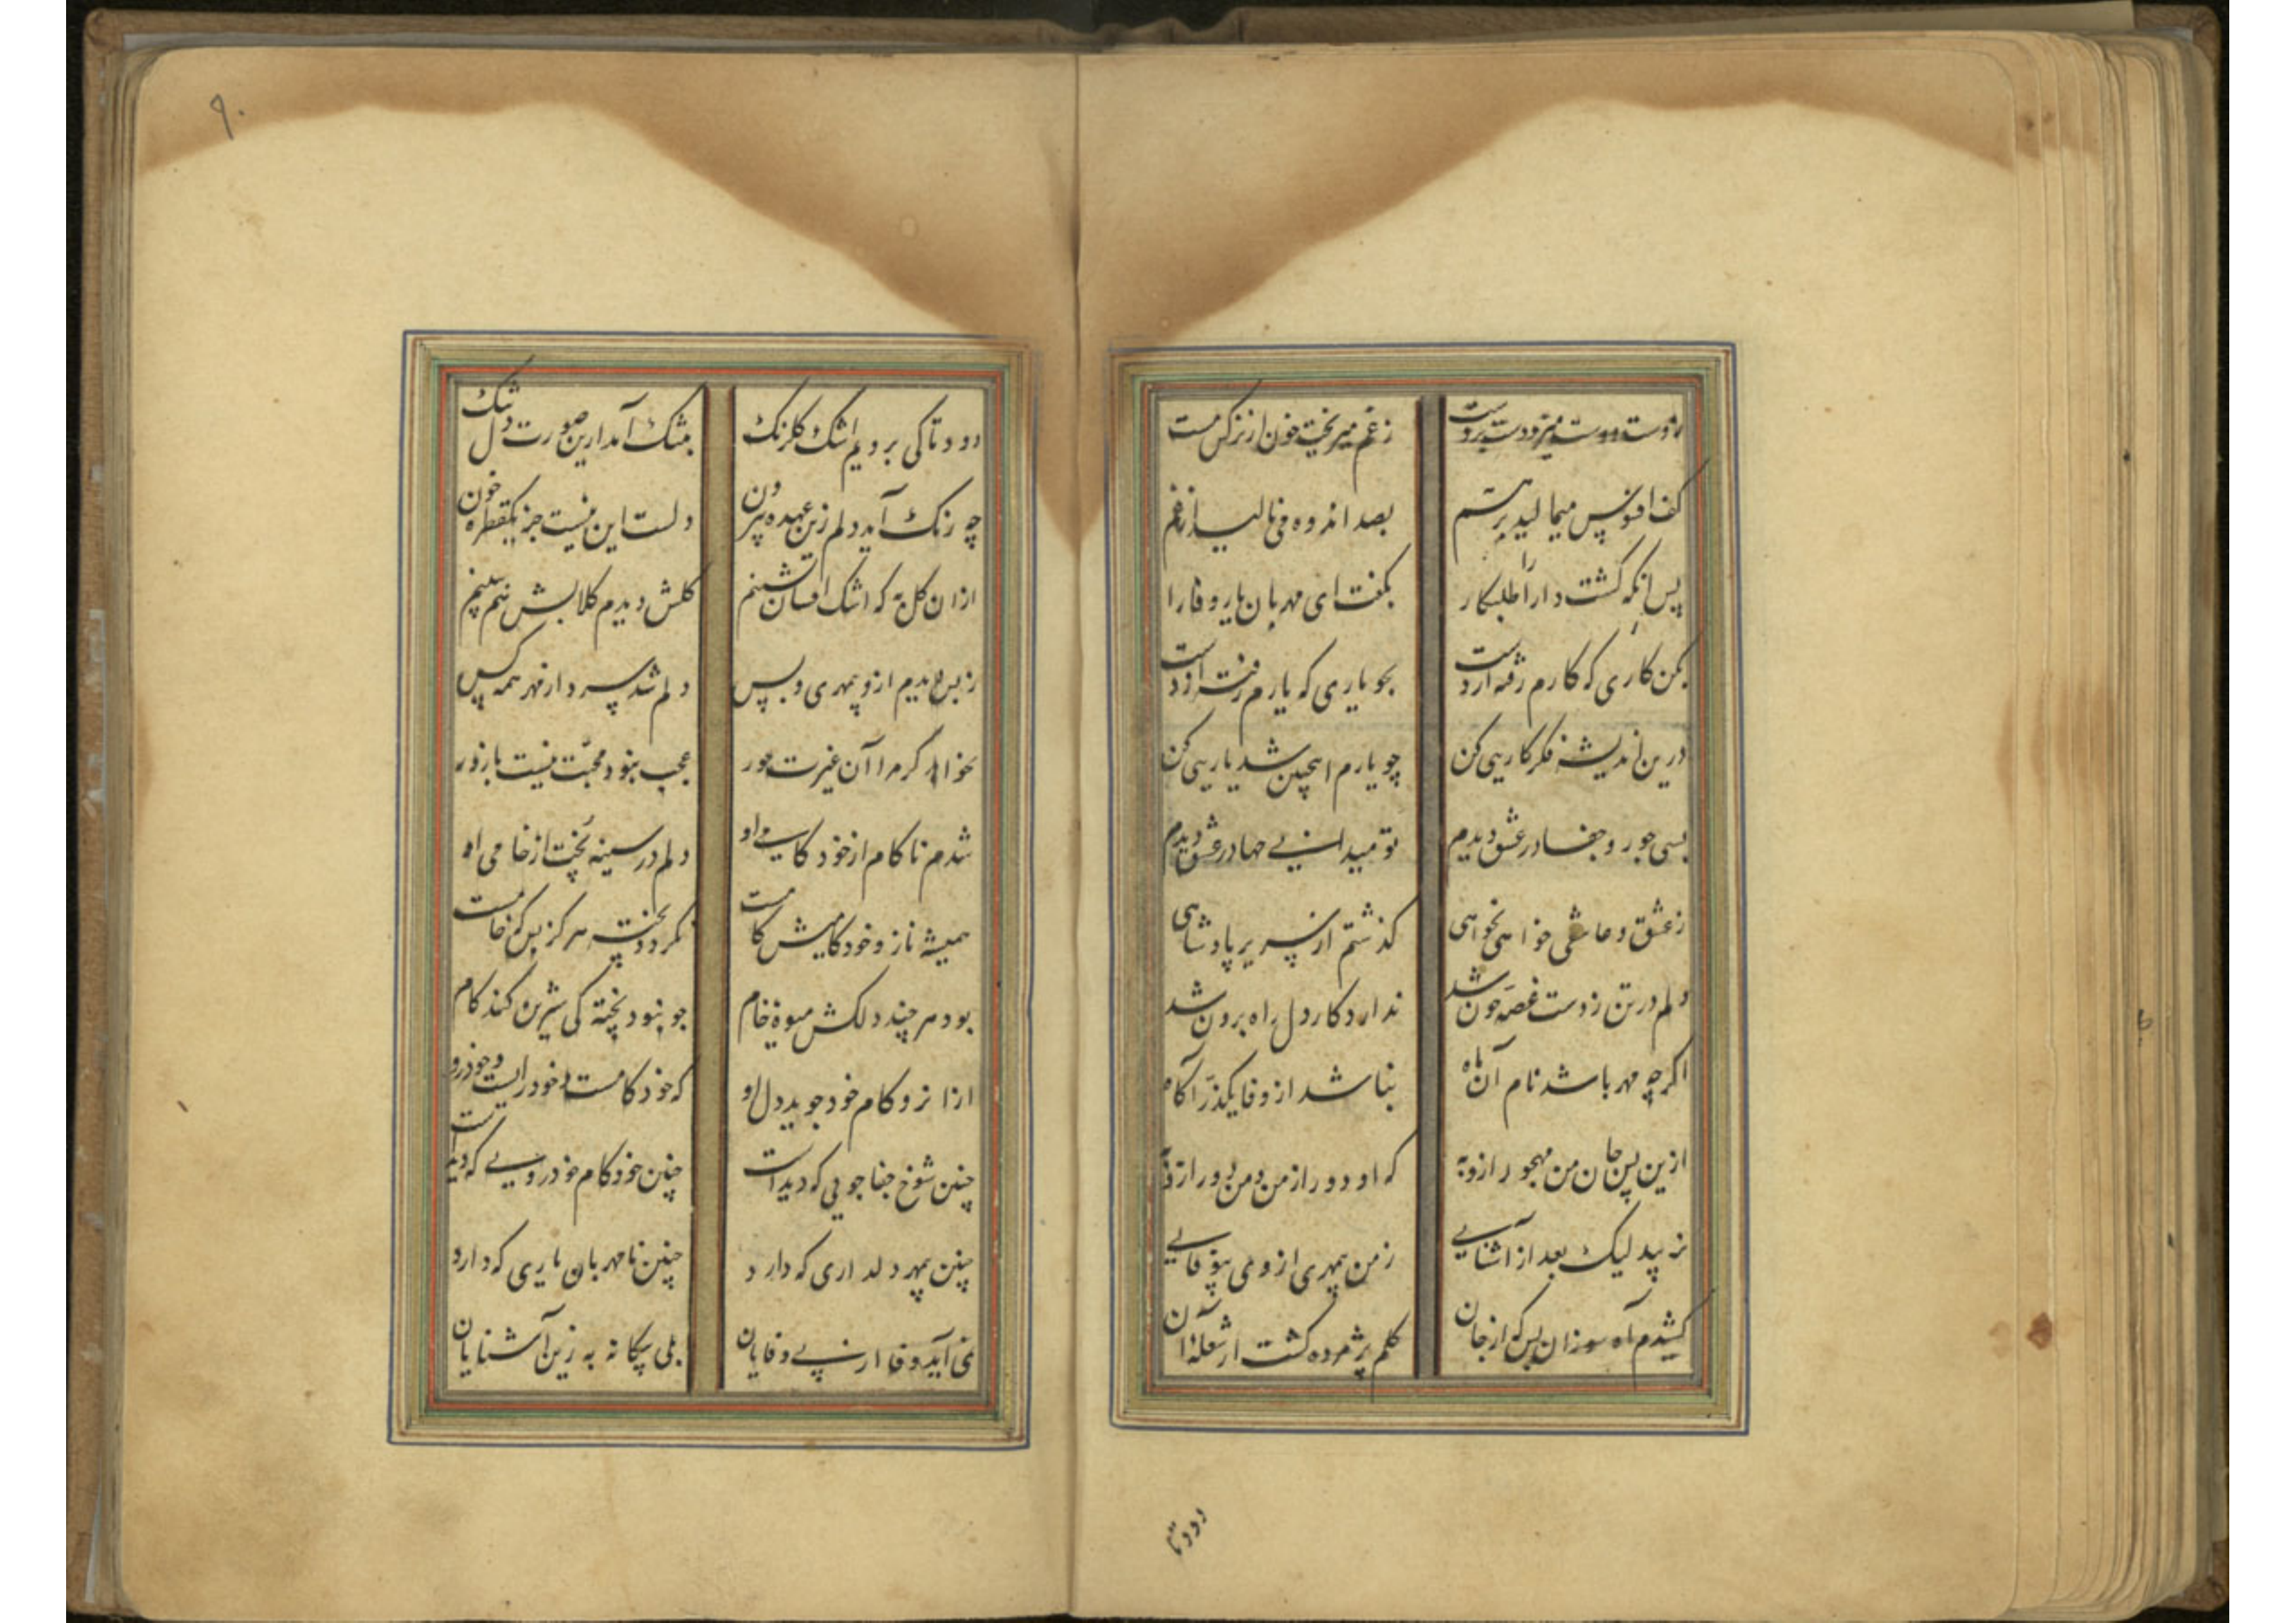 ز دست دوست میزد دست بر دست
ز غم میریخت خون از نرگس مست
کف افسوس میمالید بر هم
بصد اندوه می نالید از غم
پس آنکه گشت دارا را طلبکار
بگفت ای مهربان یار وفادار
بکن کاری که کارم رفته از دست
بجو یاری که یارم رفته از دست
درین اندیشه فکر کار من کن
چو یارم اینچنین شد یاریی کن
بسی جور و جفا در عشق دیدم
تو میدانی چها در عشق دیدم
ز عشق و عاشقی خواهی نخواهی
گذشتم از سریر پادشاهی
دلم در تن ز دست غصه خون شد
ندارد کار دل راه برون شد
اگر چه مهر باشد نام آن ماه
نباشد از وفا یکذره آگاه
ازین پس جان من مهجور ازو به
که او دور از من و من دور ازو به
نزیبد لیک بعد از آشنایی
ز من بیمهری ازوی بیوفایی
کشیدم آه سوزان بس که از جان
گلم پژمرده گشت از شعله آن
دود تا
۹۰
دود تا کی برویم اشک گلرنگ
بتنگ آمد ازین صورت دل تنگ
چه رنگ آید دلم زین عهده بیرون
دلست این نیست جز یکقطره خون
ازان گل به که اشک افشان نشینم
گلش دیدم گلابش هم ببینم
ز بس دیدم ازو بیمهری و بس
دلم شد سرد از مهر همه کس
نخواهد گر مرا آن غیرت حور
عجب نبود محبت نیست با زور
شدم ناکام از خود کامی او
دلم در سینه پخت از خامی او
همیشه ناز و خودکامیش کامست
نگردد پخته هرگز بس که خامست
بود هر چند دلکش میوهٔ خام
چو نبود پخته کی شیرین کند کام
ازانرو کام خود جوید دل او
که خود کامست و خود رایست و خودرو
چنین شوخ جفا جویی که دیدست
چنین خودکام خودرویی که دیدست
چنین بیمهر دلداری که دارد
چنین نامهربان یاری که دارد
نمی آید وفا از بی وفایان
بلی بیگانه به زین آشنایان